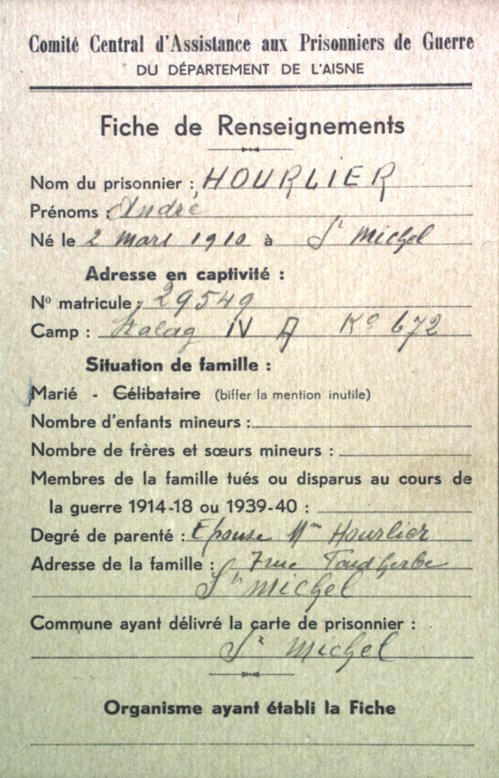 Comité Central d'Assistance aux Prisonniers de Guerre
DU DÉPARTEMENT DE L'AISNE
Fiche de Renseignements
Nom du prisonnier : HOURLIER
Prénoms : André
Né le 2 mars 1910 à St Michel
Adresse en captivité :
No matricule : 29549
Camp : Stalag IV A Ko 672
Situation de famille :
Marié - Célibataire (biffer la mention inutile)
Nombre d'enfants mineurs :
Nombre de frères et sœurs mineurs :
Membres de la famille tués ou disparus au cours de
la guerre 1914-18 ou 1939-40 :
Degré de parenté : Epouse Mme Hourlier
Adresse de la famille : 7 rue
St Michel
Commune ayant délivré la carte de prisonnier :
St Michel
Organisme ayant établi la Fiche